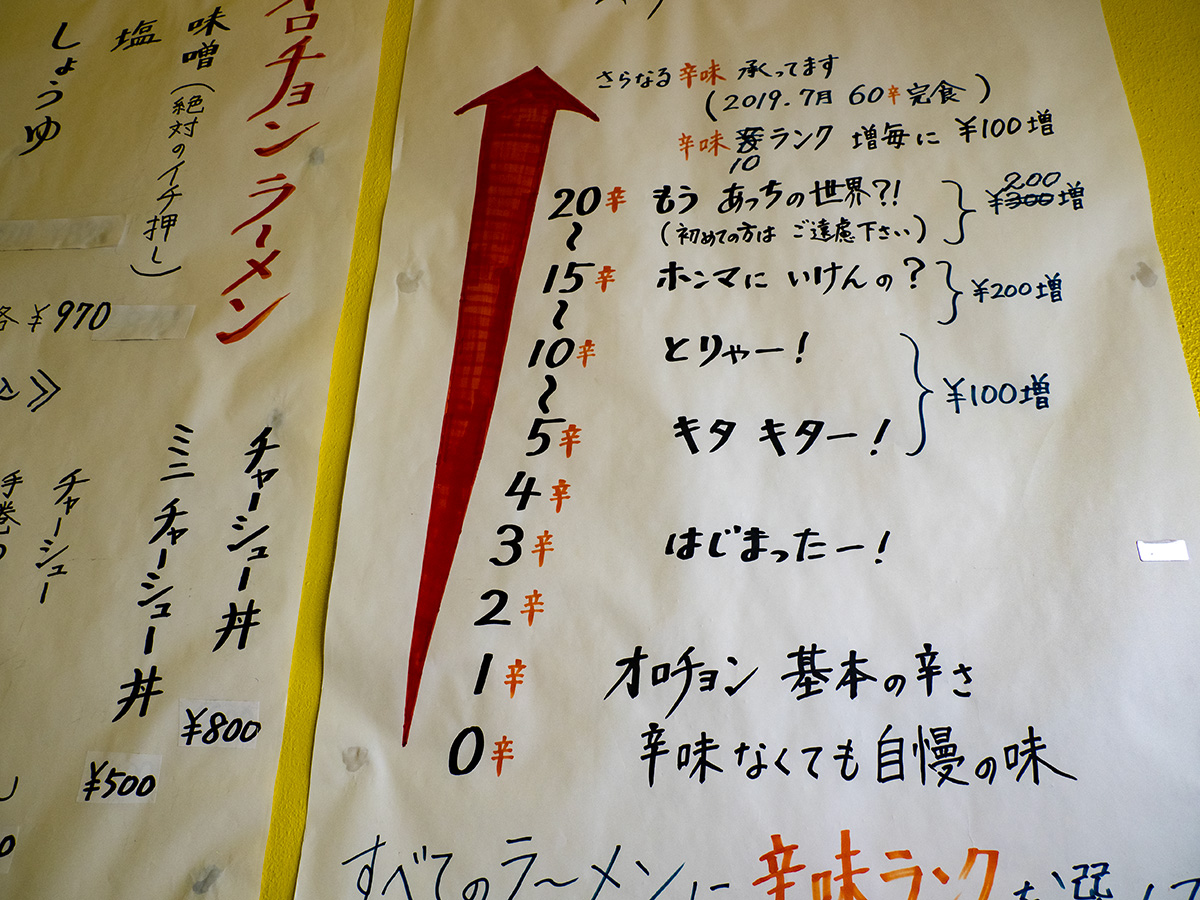 オロチョンラーメン
味噌(絶対のイチ押し)
塩
しょうゆ
¥970
チャーシュー丼
¥800
ミニチャーシュー丼
¥500
チャーシュー
手巻
さらなる辛味 承ってます
(2019.7月 60辛完食)
辛味 10 ランク 増毎に ¥100増
20辛 もう あっちの世界?! 200
¥300増
(初めての方は ご遠慮下さい)
〜
15辛 ホンマに いけんの? ¥200増
〜
10辛 とりゃー!
〜 ¥100増
5辛 キタ キター!
4辛
3辛 はじまったー!
2辛
1辛 オロチョン 基本の辛さ
0辛 辛味なくても自慢の味
すべてのラーメンに 辛味ランク